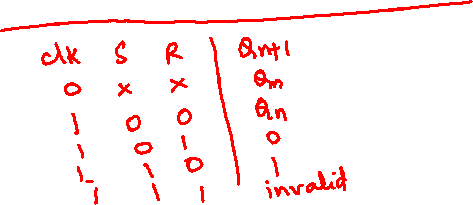 clk S R Qn+1
0 x x Qn
1 0 0 Qn
1 0 1 0
1 1 0 1
1 1 1 invalid